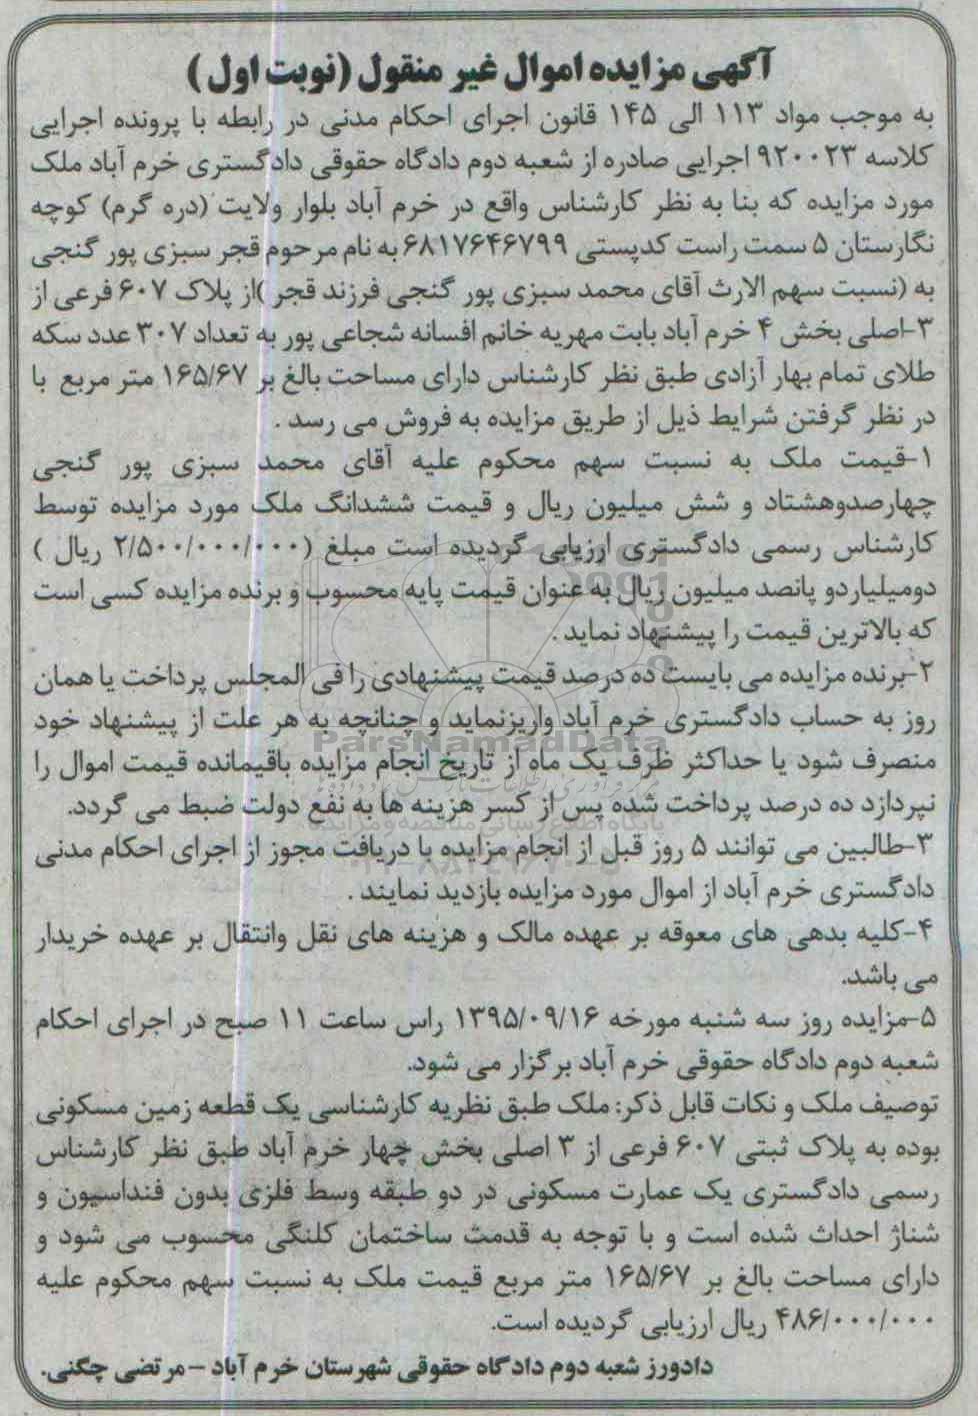 آگهی مزایده اموال غیر منقول (نوبت اول)
به موجب مواد ۱۱۳ الی ۱۴۵ قانون اجرای احکام مدنی در رابطه با پرونده اجرایی
کلاسه ۹۲۰۰۲۳ اجرایی صادره از شعبه دوم دادگاه حقوقی دادگستری خرم آباد ملک
مورد مزایده که بنا به نظر کارشناس واقع در خرم آباد بلوار ولایت (دره گرم) کوچه
نگارستان ۵ سمت راست کدپستی ۶۸۱۷۶۴۶۷۹۹ به نام مرحوم قجر سبزی پور گنجی
به (نسبت سهم الارث آقای محمد سبزی پور گنجی فرزند قجر )از پلاک ۶۰۷ فرعی از
۳-اصلی بخش ۴ خرم آباد بابت مهریه خانم افسانه شجاعی پور به تعداد ۳۰۷ عدد سکه
طلای تمام بهار آزادی طبق نظر کارشناس دارای مساحت بالغ بر ۱۶۵/۶۷ متر مربع با
در نظر گرفتن شرایط ذیل از طریق مزایده به فروش می رسد .
۱-قیمت ملک به نسبت سهم محکوم علیه آقای محمد سبزی پور گنجی
چهارصدوهشتاد و شش میلیون ریال و قیمت ششدانگ ملک مورد مزایده توسط
کارشناس رسمی دادگستری ارزیابی گردیده است مبلغ (۲/۵۰۰/۰۰۰/۰۰۰ ریال )
دومیلیاردو پانصد میلیون ریال به عنوان قیمت پایه محسوب و برنده مزایده کسی است
که بالاترین قیمت را پیشنهاد نماید .
۲-برنده مزایده می بایست ده درصد قیمت پیشنهادی را فی المجلس پرداخت یا همان
روز به حساب دادگستری خرم آباد واریزنماید و چنانچه به هر علت از پیشنهاد خود
منصرف شود یا حداکثر ظرف یک ماه از تاریخ انجام مزایده باقیمانده قیمت اموال را
نپردازد ده درصد پرداخت شده پس از کسر هزینه ها به نفع دولت ضبط می گردد.
۳-طالبین می توانند ۵ روز قبل از انجام مزایده با دریافت مجوز از اجرای احکام مدنی
دادگستری خرم آباد از اموال مورد مزایده بازدید نمایند .
۴-کلیه بدهی های معوقه بر عهده مالک و هزینه های نقل وانتقال بر عهده خریدار
می باشد.
۵-مزایده روز سه شنبه مورخه ۱۳۹۵/۰۹/۱۶ راس ساعت ۱۱ صبح در اجرای احکام
شعبه دوم دادگاه حقوقی خرم آباد برگزار می شود.
توصیف ملک و نکات قابل ذکر: ملک طبق نظریه کارشناسی یک قطعه زمین مسکونی
بوده به پلاک ثبتی ۶۰۷ فرعی از ۳ اصلی بخش چهار خرم آباد طبق نظر کارشناس
رسمی دادگستری یک عمارت مسکونی در دو طبقه وسط فلزی بدون فنداسیون و
شناژ احداث شده است و با توجه به قدمت ساختمان کلنگی محسوب می شود و
دارای مساحت بالغ بر ۱۶۵/۶۷ متر مربع قیمت ملک به نسبت سهم محکوم علیه
۴۸۶/۰۰۰/۰۰۰ ریال ارزیابی گردیده است.
دادورز شعبه دوم دادگاه حقوقی شهرستان خرم آباد - مرتضی چگنی.
ParsNamadData
پایگاه اطلاع رسانی مناقصه و مزایده